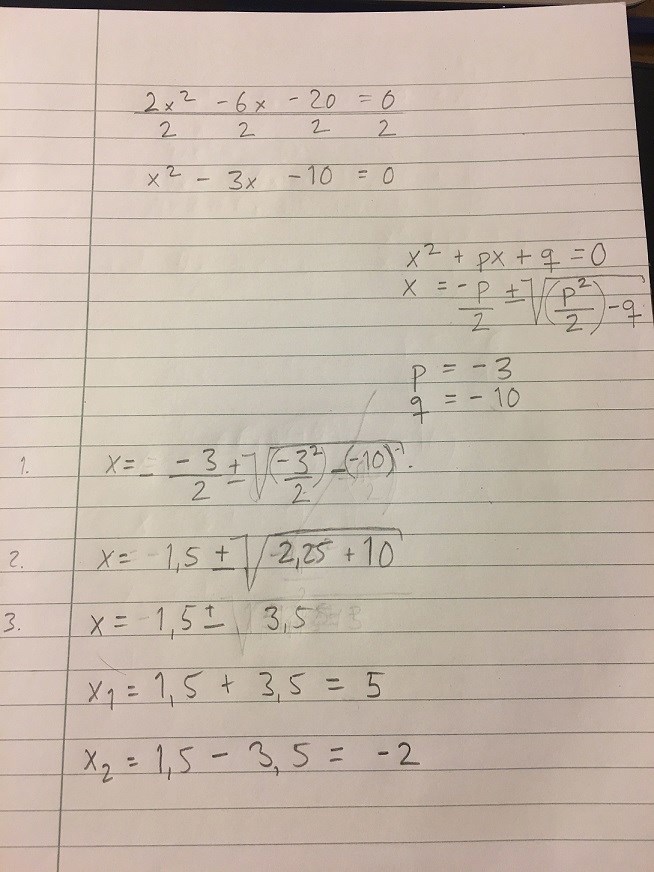 2x² - 6x - 20 = 0
2 2 2 2
x² - 3x - 10 = 0
x² + px + q = 0
x = -p/2 ± √((p²/2) - q)
p = -3
q = -10
1. x = - -3/2 ± √((-3²/2) - (-10))
2. x = 1,5 ± √(2,25 + 10)
3. x = 1,5 ± 3,5
x₁ = 1,5 + 3,5 = 5
x₂ = 1,5 - 3,5 = -2